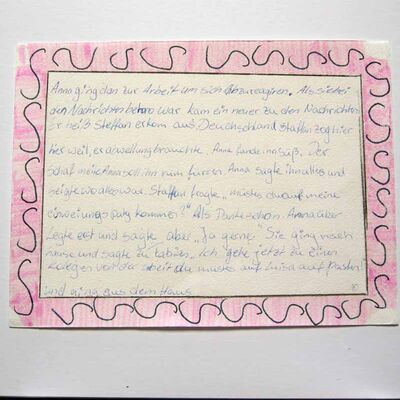 Anna ging dan zur Arbeit um sich abzureagiren. Als sie bei
den Nachrichten war kam ein neuer zu den Nachrichten
er heiß Steffan er kam aus Deuchschland Staffan zog hier
her weil, er acwellung brauchte. Anna fande inn süß. Der
schaf meite Anna soll inn rum füren. Anna sagte inn alles und
zeigte wo alles war. Staffan fragte „ müstes du auf meine
einweiungs paty kommen?" Als Dankeschön. Anna über
legte erst und sagte aber „Ja gerne." Sie ging nach
hause und sagte zu Tabias. Ich gehe jetzt zu einen
kolegen von der abeit du mustes auf Luisa auf passen!
und ging aus dem Haus.